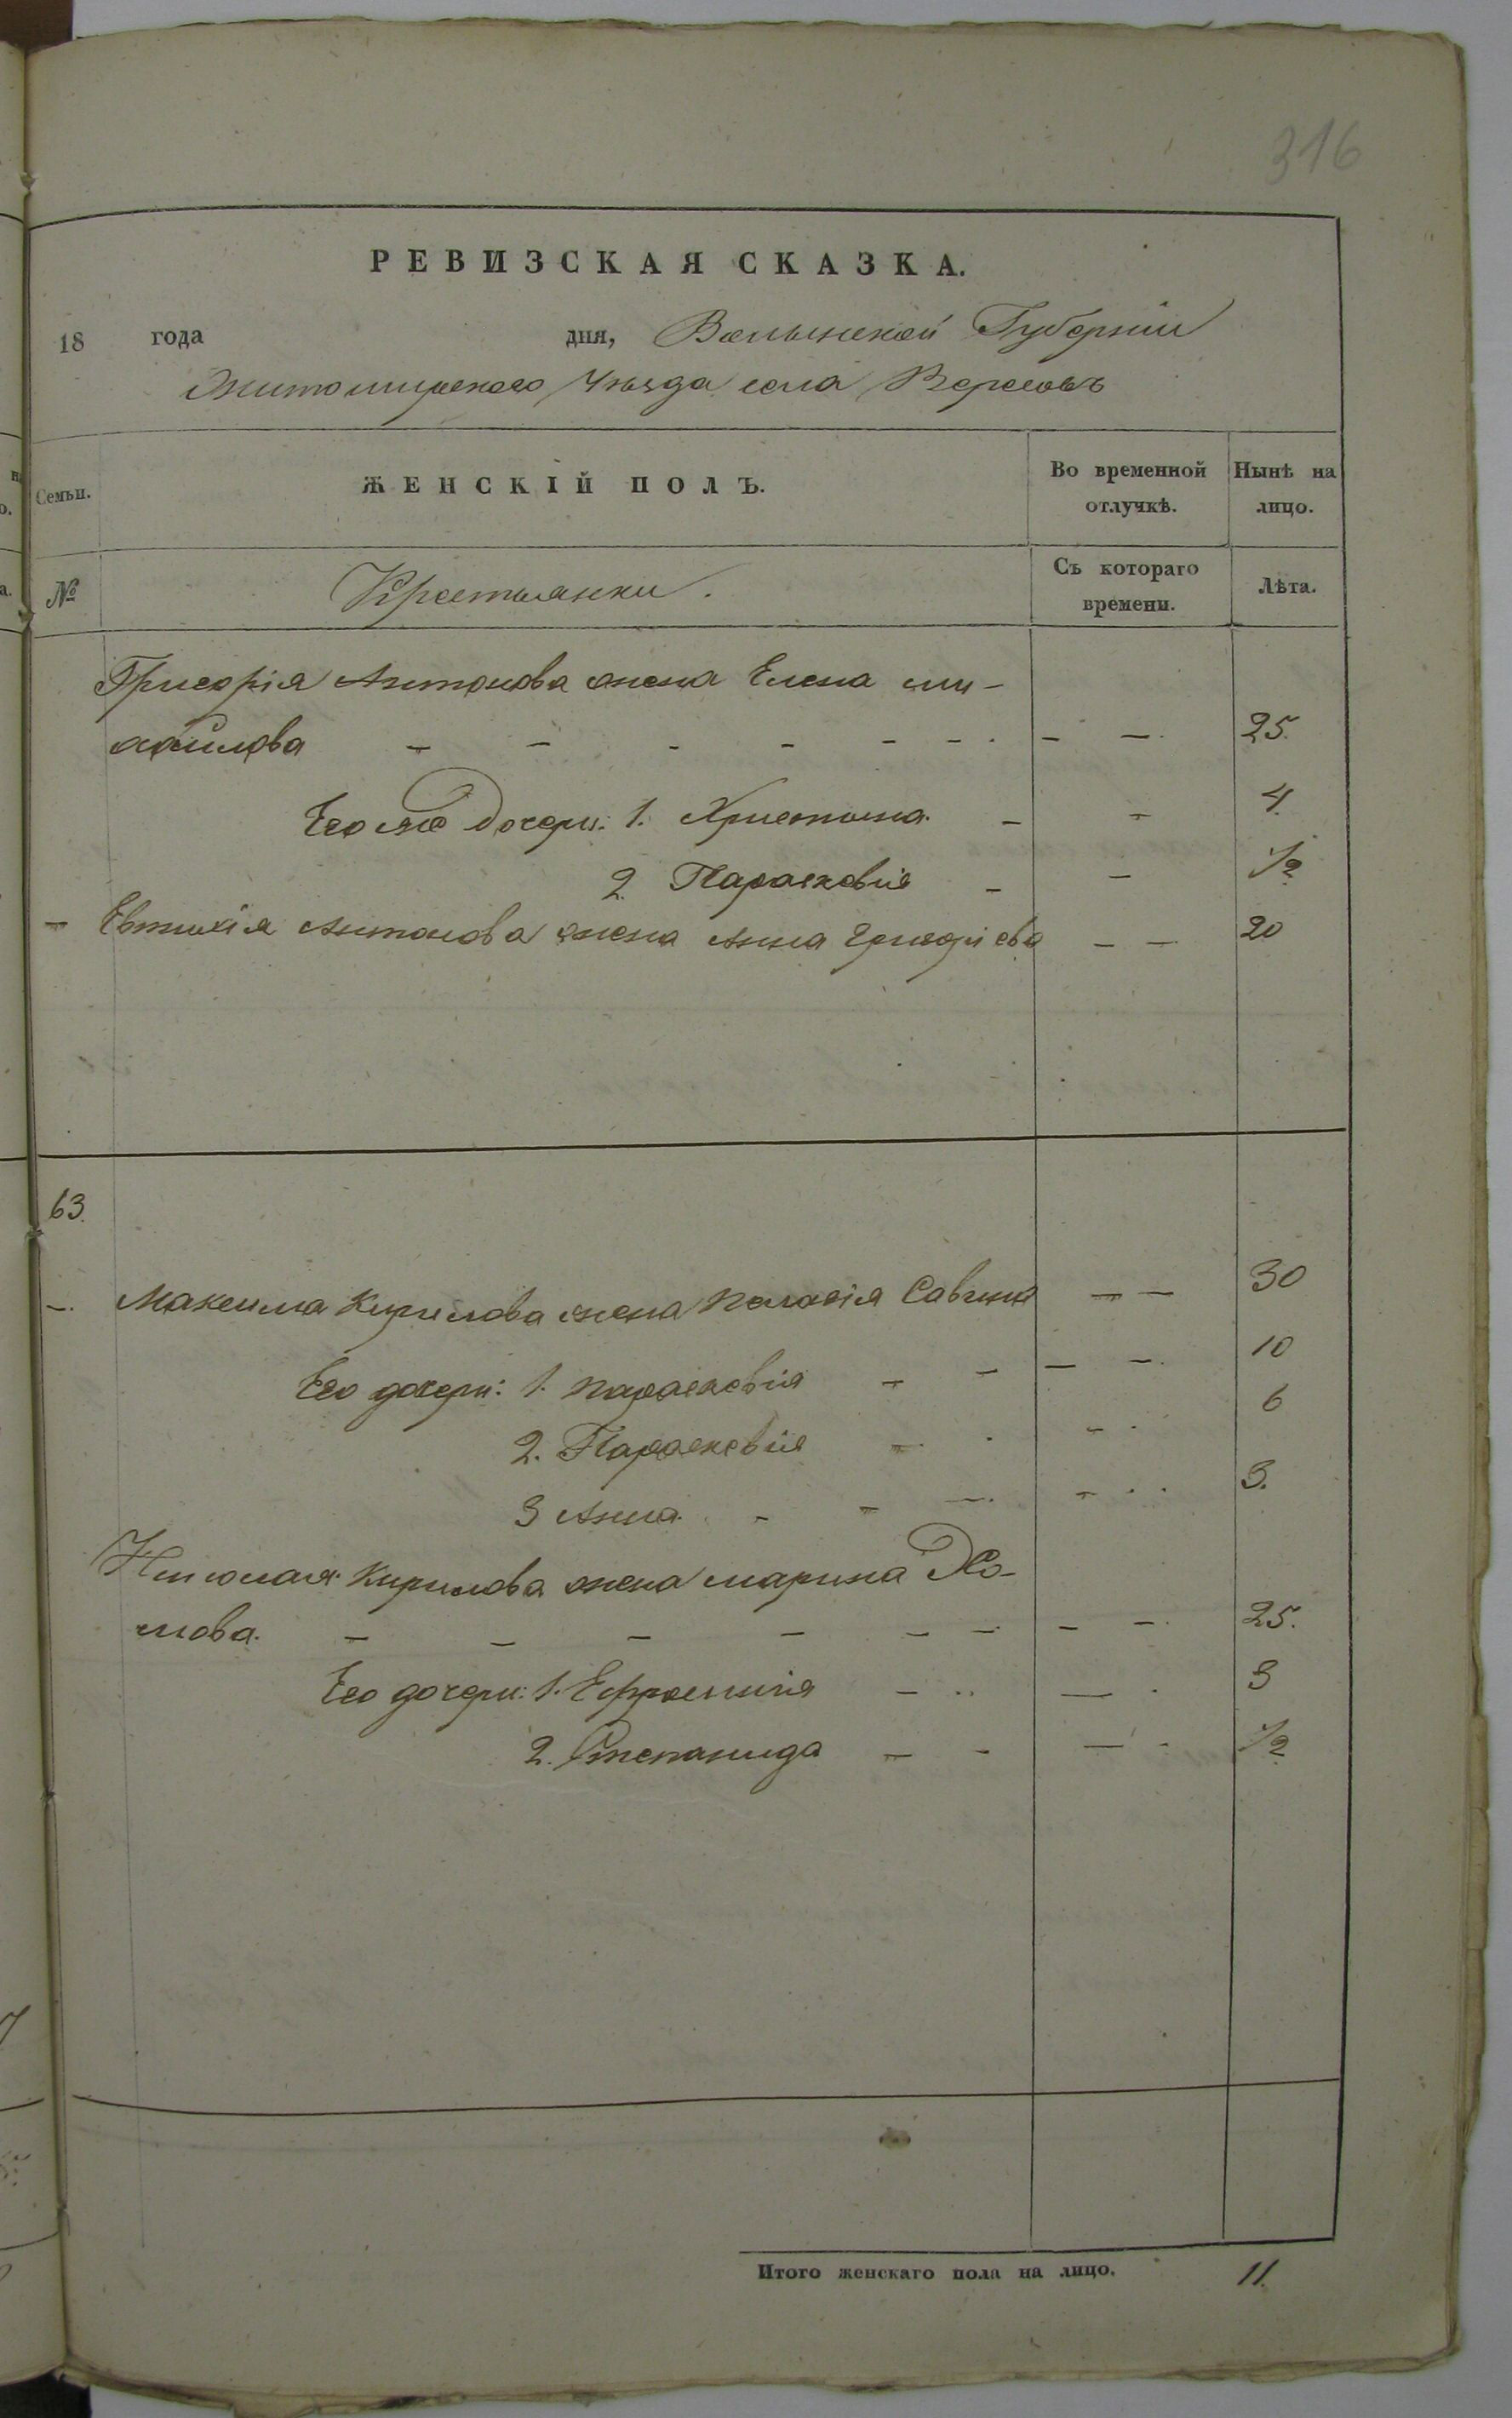 316
РЕВИЗСКАЯ СКАЗКА.
18 года дня, Волынской Губерніи
Житомирского Уѣзда села Вересовъ
Семьи. ЖЕНСКІЙ ПОЛЪ. Во временной отлучкѣ. Нынѣ на лицо.
№ Крестьянки. Съ котораго времени. Лѣта.
Григорія Антонова жена Елена ми-
хайлова - - - - - - - - 25.
Его же дочери: 1. Христина - - 4.
2. Параскевія - - 1/2
- Евтихія Антонова жена Анна Григоріева - - 20
63.
- Максима Кирилова жена Пелагія Савина - - 30
Его дочери: 1. Параскевія - - - - 10
2. Параскевія - - - 6
3 Анна - - - - 3.
Николая Кирилова жена Марина Хо-
мова - - - - - - - - 25.
Его дочери: 1. Ефросинія - - - 3
2. Степанида - - - - 1/2
Итого женскаго пола на лицо. 11.